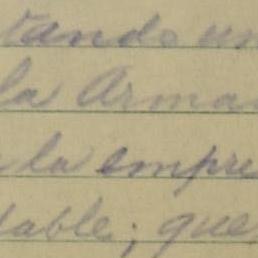 tando un
la Arma
la empre
table; que